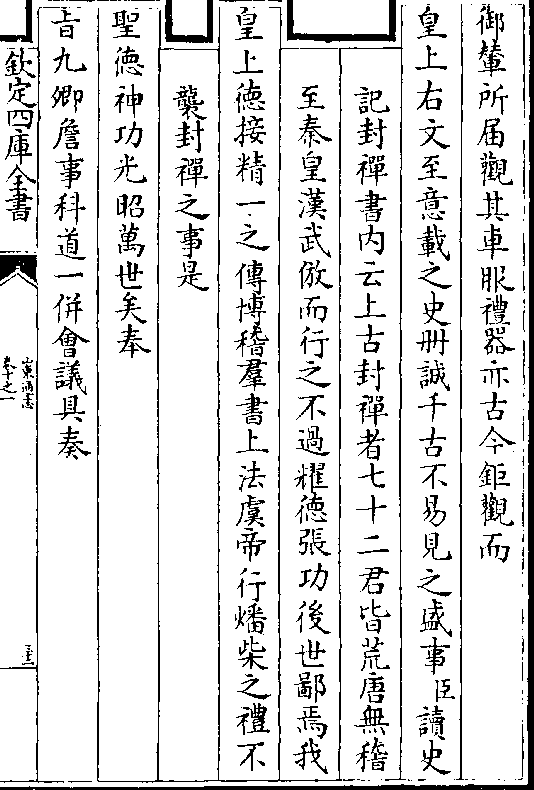 御輦所届觀其車服禮器亦古今鉅觀而
皇上右文至意載之史冊誠千古不易見之盛事臣讀史
記封禪書内云上古封禪者七十二君皆荒唐無稽
至秦皇漢武倣而行之不過耀德張功後世鄙焉我
皇上德接精一之傳博稽羣書上法虞帝行燔柴之禮不
襲封禪之事是
聖德神功光昭萬世矣奉
㫖九卿詹事科道一併會議具奏
欽定四庫全書
山東通志
卷十之一